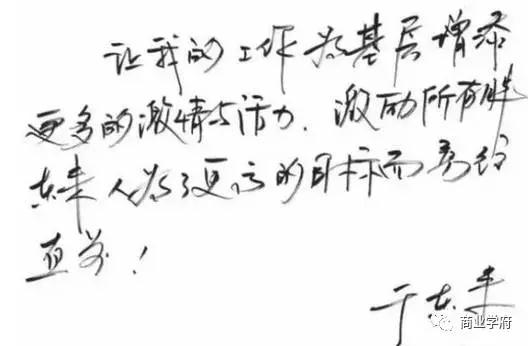 让我的工作为基层增添
更多的激情与活力，激励所有胖
东来人为了更高的目标而勇往
直前！
于东来
商业学府